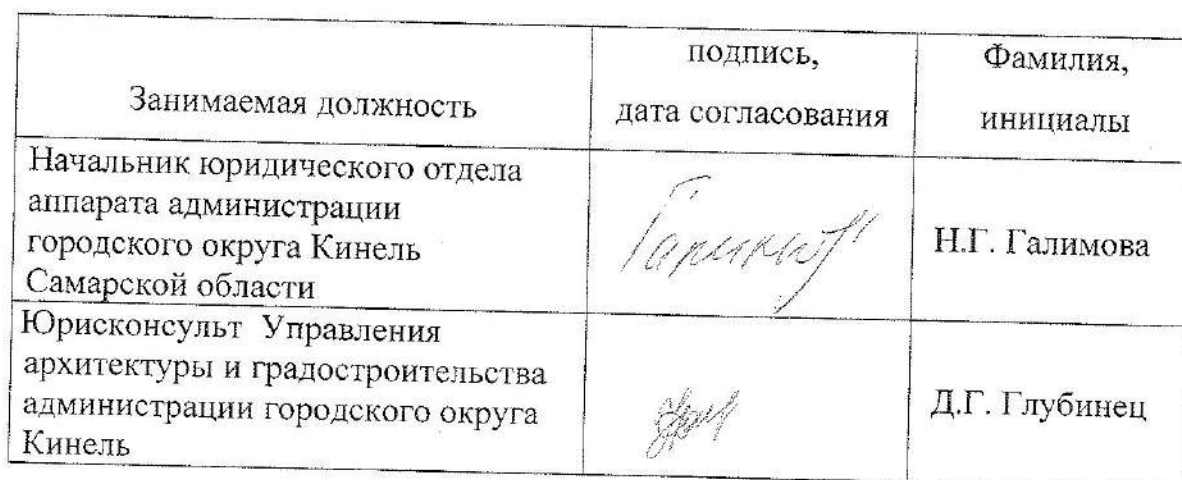 Занимаемая должность
подпись,
дата согласования
Фамилия,
инициалы
Начальник юридического отдела
аппарата администрации
городского округа Кинель
Самарской области
Н.Г. Галимова
Юрисконсульт Управления
архитектуры и градостроительства
администрации городского округа
Кинель
Д.Г. Глубинец